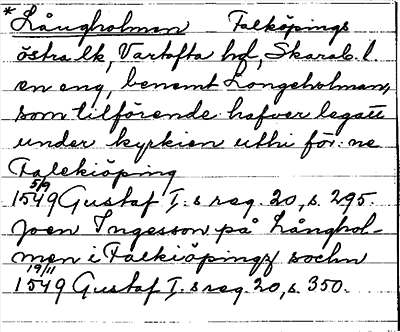 * Långholmen Falköpings
östra lk, Vartofta hd, Skarab. l
en eng, benemt Longeholman,
som tilförende hafver legatt
under kyrkien uthi för: ne
Falekiöping
5/9
1549 Gustaf I:s reg. 20, s. 295.
Joen Ingesson på Långhol-
men i Falkiöpingz sochn
19/11
1549 Gustaf I:s reg. 20, s. 350.